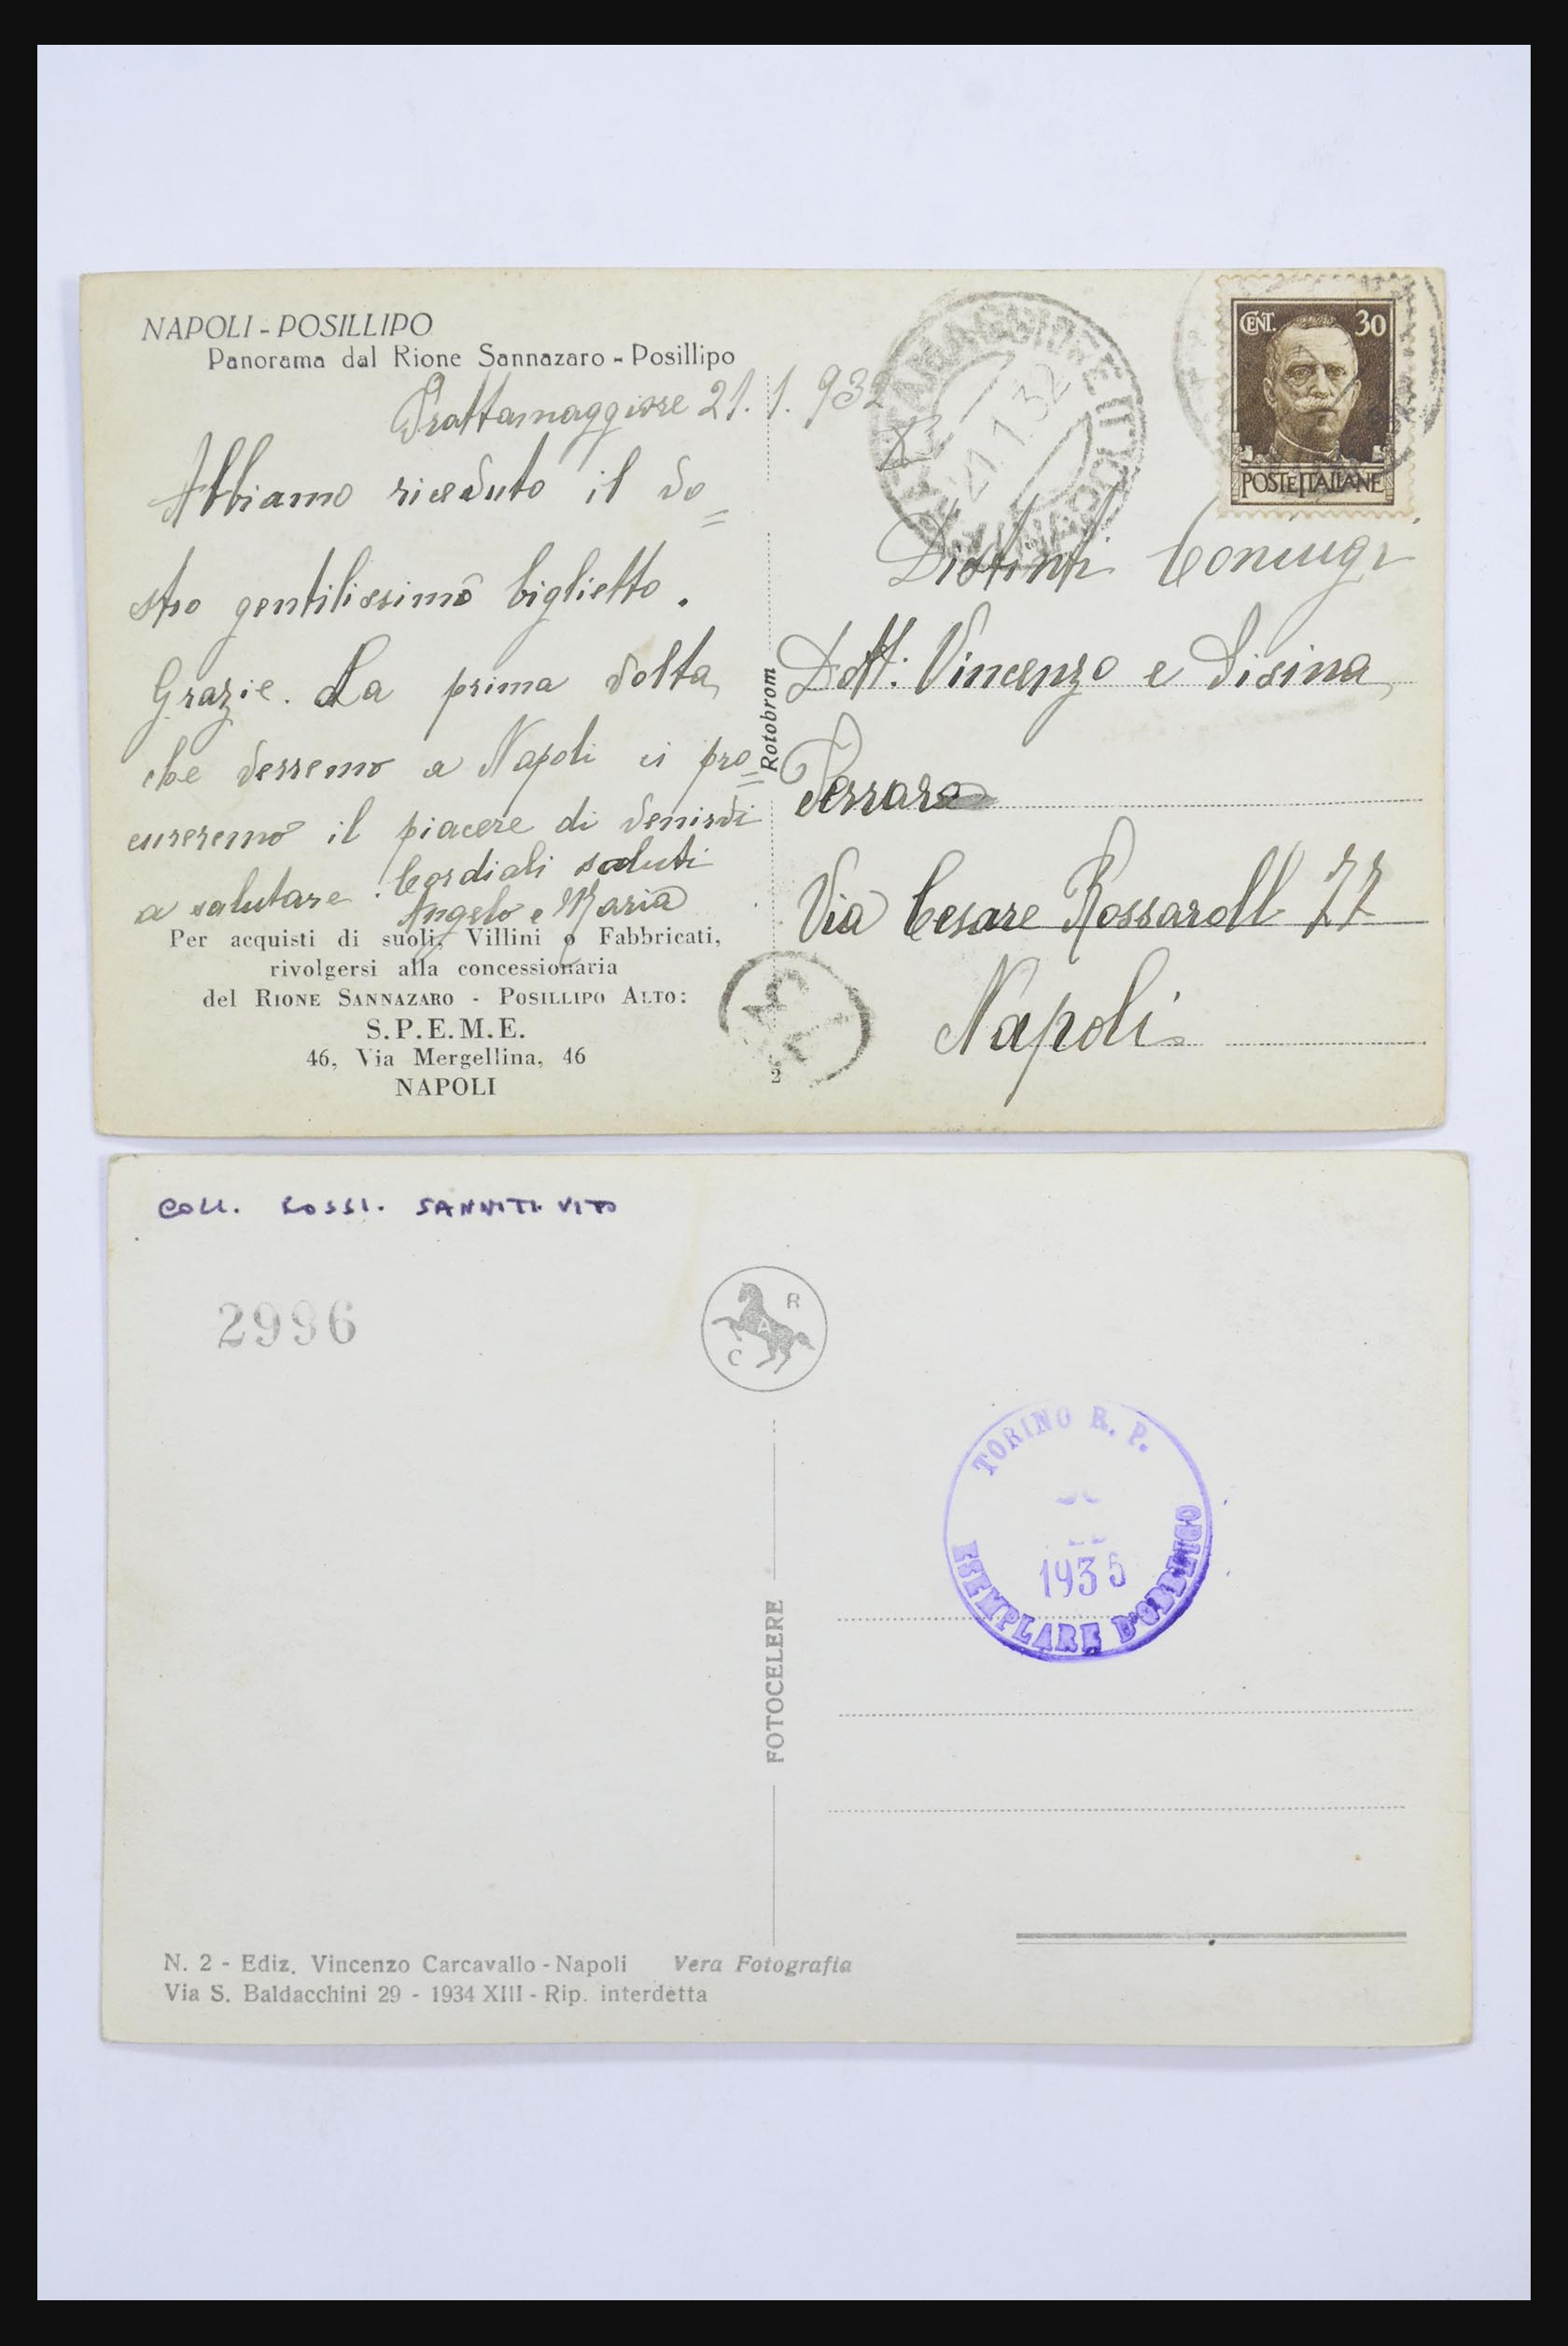 NAPOLI - POSILLIPO
Panorama dal Rione Sannazaro - Posillipo
Frattamaggiore 21.1.932
X
Abbiamo ricevuto il vo=
stro gentilissimo biglietto.
Grazie. La prima volta
che verremo a Napoli ci pro=
cureremo il piacere di venirvi
a salutare. Cordiali saluti
Angelo e Maria
Per acquisti di suoli, Villini o Fabbricati,
rivolgersi alla concessionaria
del RIONE SANNAZARO - POSILLIPO ALTO:
S.P.E.M.E.
46, Via Mergellina, 46
NAPOLI
Rotobrom
2
21.1.32
CENT. 30
POSTE ITALIANE
Distinti Coniugi
Dott. Vincenzo e Sisina
Ferrara
Via Cesare Rossaroll 77
Napoli
COLL. ROSSI. SANNITI VITO
2996
C A R
FOTOCELERE
TORINO R. P.
1935
ESEMPLARE D'OBBLIGO
N. 2 - Ediz. Vincenzo Carcavallo - Napoli Vera Fotografia
Via S. Baldacchini 29 - 1934 XIII - Rip. interdetta